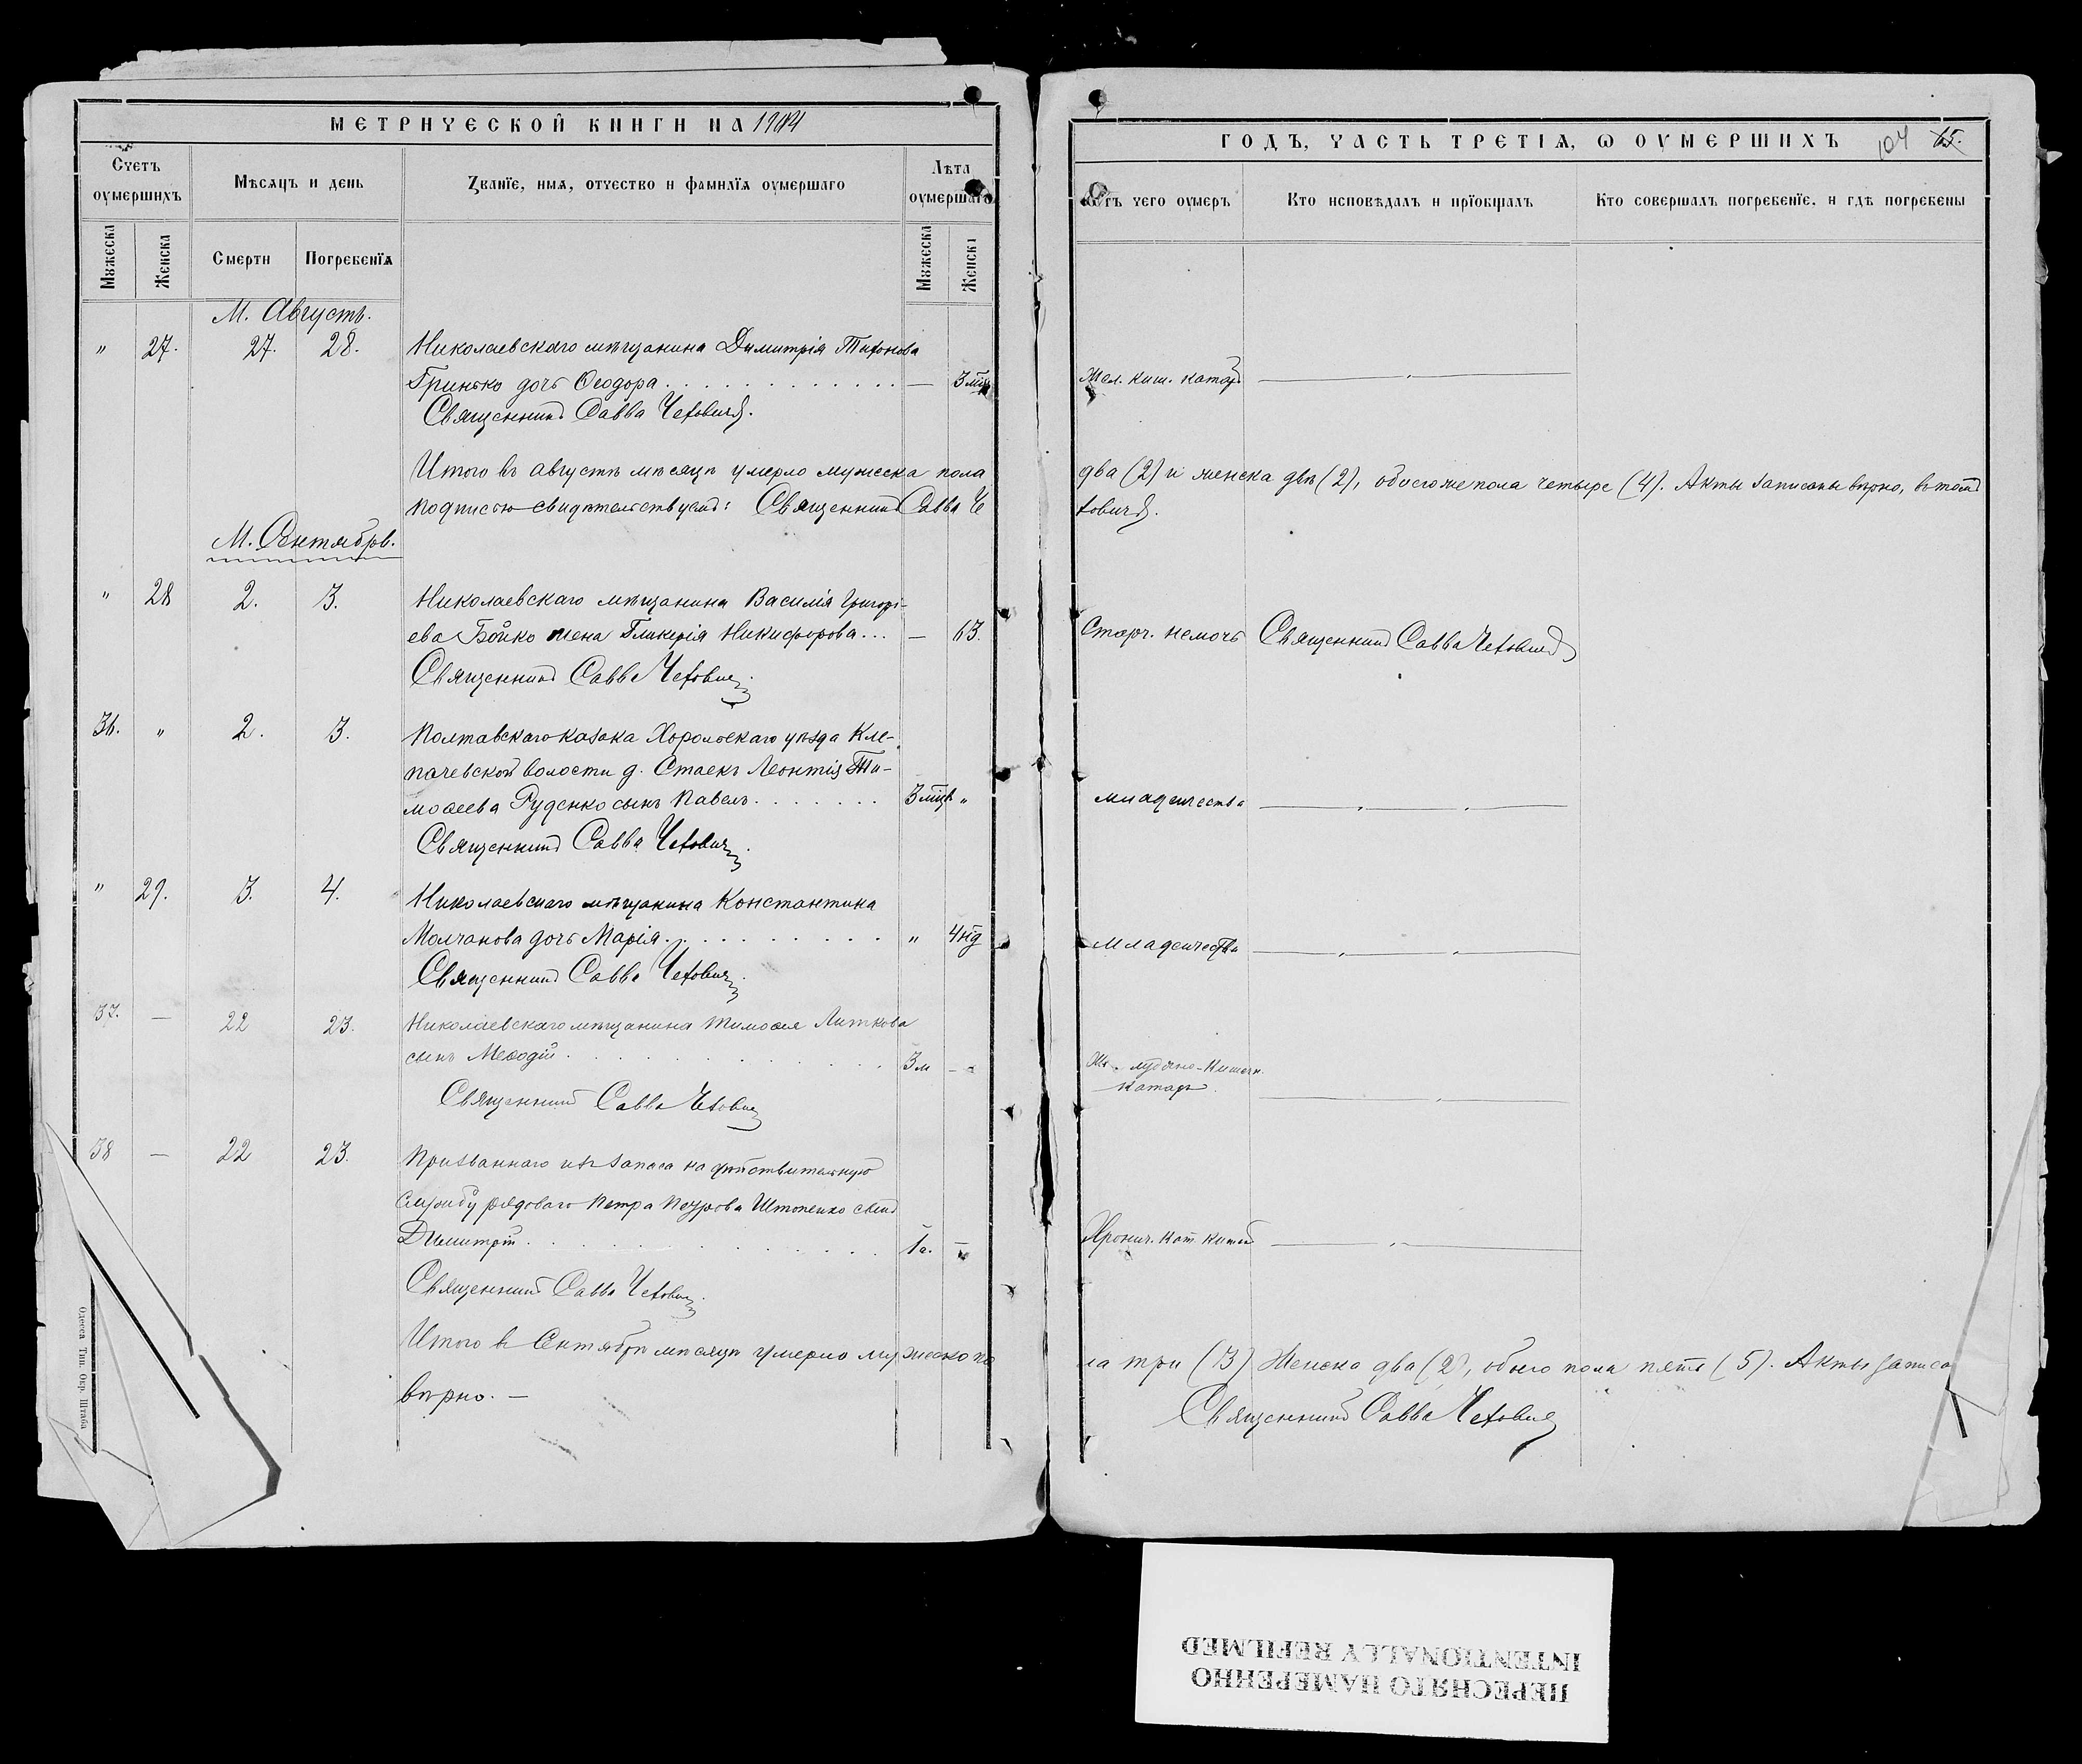 МЕТРИЧЕСКОЙ КНИГИ НА 1904
Счетъ оумершихъ
Мѣсяцъ и день
Званіе, имя, отчество и фамилія оумершаго
Лѣта оумершаго
Мужеска
Женска
Смерти
Погребенія
Мужеска
Женска
М. Августъ.
" 27. 27. 28. Николаевскаго мѣщанина Димитрія Тихонова
Гринько дочь Ѳеодора — 3 мц
Священникъ Савва Чехович.
Итого въ августѣ мѣсяцѣ умерло мужеска пола
подписью свидѣтельствуемъ: Священникъ Савва Че
М. Сентябрь.
" 28 2. 3. Николаевскаго мѣщанина Василія Григорі-
ева Бойко жена Гликерія Никифорова... — 63.
Священникъ Савва Чехович
36. " 2. 3. Полтавскаго казака Хорольскаго уѣзда Кле-
пачевской волости д. Стаекъ Леонтія Ти-
моѳеева Руденко сынъ Павелъ 3 мцв "
Священникъ Савва Чехович
" 29. 3. 4. Николаевскаго мѣщанина Константина
Молчанова дочь Марія " 4 нд
Священникъ Савва Чехович
37. — 22 23. Николаевскаго мѣщанина Тимоѳея Литкова
сынъ Меѳодій 3 м —
Священникъ Савва Чехович
38 — 22 23. Призваннаго изъ запаса на дѣйствительную
службу рядоваго Петра Петрова Штопенко сынъ
Димитрій 1 г. —
Священникъ Савва Чехович
Итого въ Сентябрѣ мѣсяцѣ умерло мужеска по
вѣрно. —
Одесса Тип. Окр. Штаба
ГОДЪ, ЧАСТЬ ТРЕТІЯ, Ѡ ОУМЕРШИХЪ 104 65.
Ѿтъ чего оумеръ
Кто исповѣдалъ и пріобщалъ
Кто совершалъ погребеніе, и гдѣ погребены
Жел. киш. катар
два (2) и женска двѣ (2), обоегоже пола четыре (4). Акты записаны вѣрно, въ томъ
хович.
Старч. немочь Священникъ Савва Чехович
младенчества
младенчества
Желудочно-Кишечн.
катаръ
Хронич. кат. кишек
ла три (3) Женска два (2), обоего пола пять (5). Акты записа
Священникъ Савва Чехович
ПЕРЕСНЯТО НАМЕРЕННО
INTENTIONALLY REFILMED